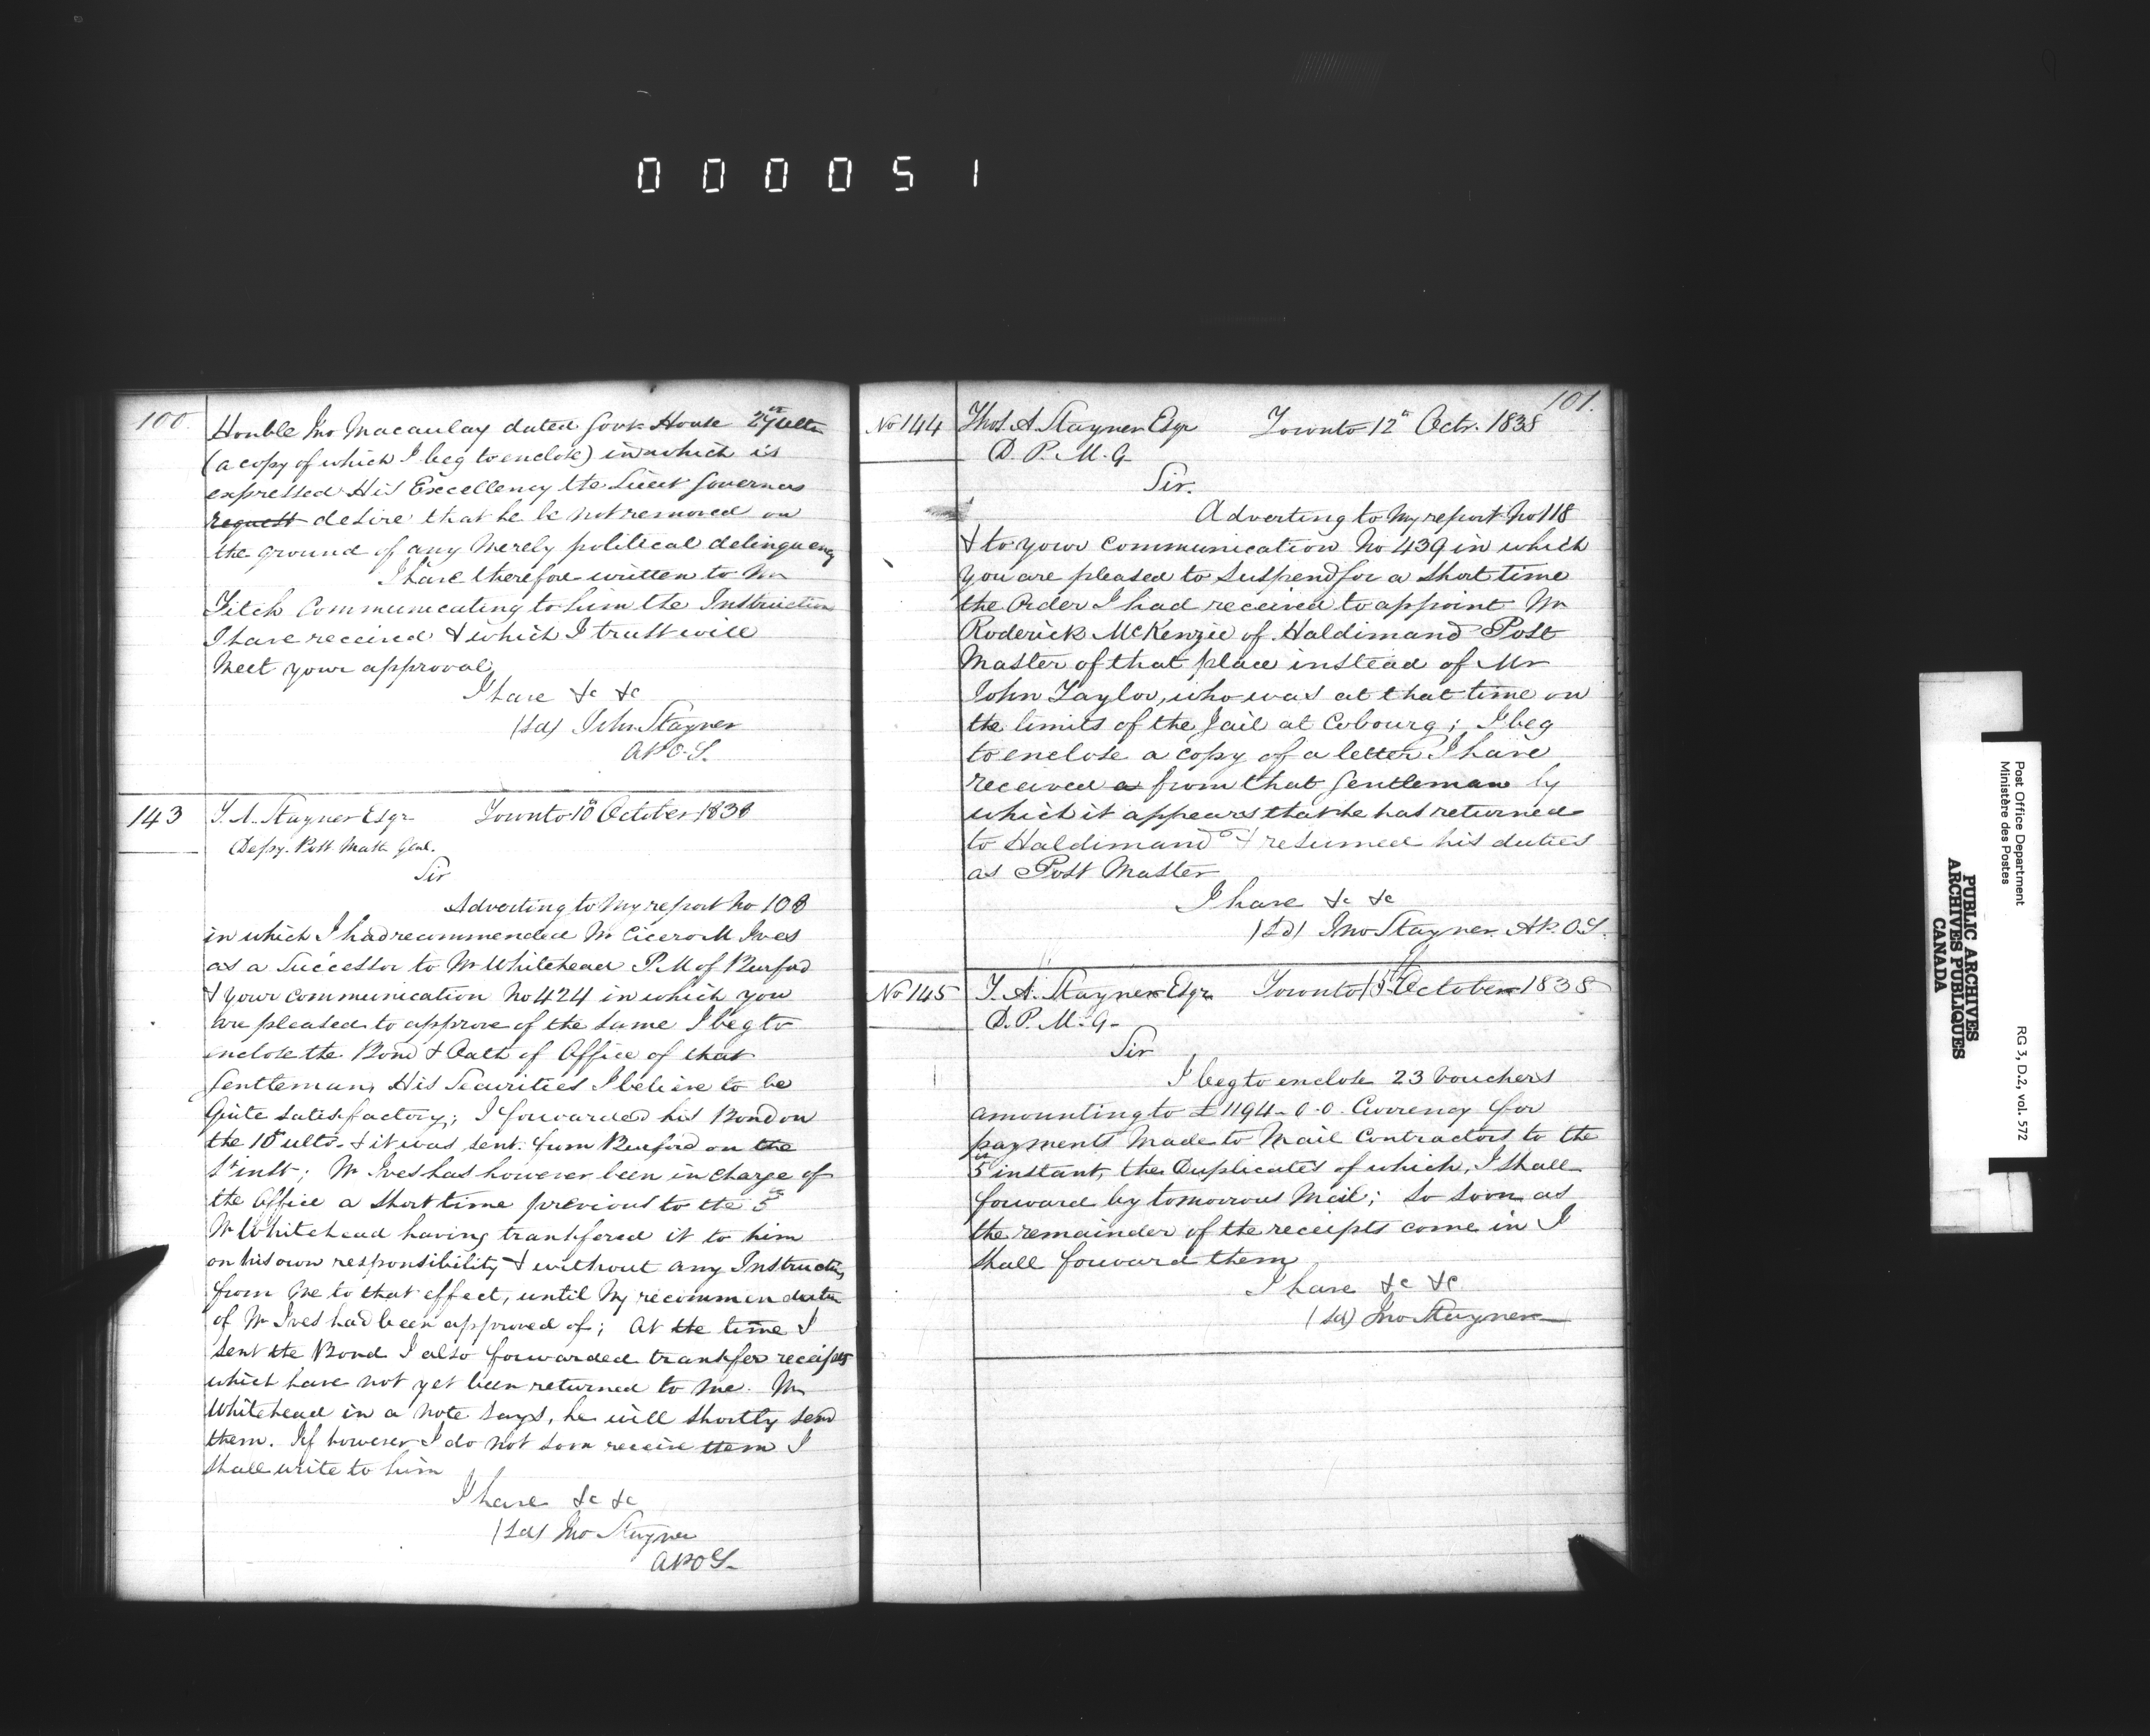 000051
100.
Honble Jno Macaulay dated Govt House 27th ulto
(a copy of which I beg to enclose) in which is
expressed His Excellency the Lieut Governors
request desire that he be not removed on
the ground of any merely political delinquency
I have therefore written to Mr
Fitch Communicating to him the Instruction
I have received & which I trust will
meet your approval,
I have &c &c
(Sd) John Stayner
A.P.O.S.
143
T. A. Stayner Esqr Toronto 10th October 1838
Depy. Post Mastr Genl.
Sir
Adverting to my report No 108
in which I had recommended Mr Cicero M Ives
as a Successor to Mr Whitehead P.M of Burford
& your communication No 424 in which you
are pleased to approve of the same I beg to
enclose the Bond & Oath of Office of that
Gentleman, His Securities I believe to be
Quite satisfactory; I forwarded his Bond on
the 10th ulto. & it was sent from Burford on the
inst; Mr Ives has however been in charge of
the Office a short time previous to the 5th
Mr Whitehead having transfered it to him
on his own responsibility & without any Instructions
from me to that effect, until my recommendation
of Mr Ives had been approved of; At the time I
sent the Bond I also forwarded transfer receipts
which have not yet been returned to me. Mr
Whitehead in a note says, he will shortly send
them. If however I do not soon receive them I
shall write to him
I have &c &c
(Sd) Jno Stayner
A.P.O.S.
101.
No 144
Thos. A. Stayner Esqr Toronto 12th Octr. 1838
D. P. M. G
Sir.
Adverting to my report No 118
& to your communication No 439 in which
you are pleased to suspend for a short time
the Order I had received to appoint Mr
Roderick McKenzie of Haldimand Post
Master of that place instead of Mr
John Taylor, who was at that time on
the limits of the Jail at Cobourg; I beg
to enclose a copy of a letter I have
received a from that Gentleman by
which it appears that he has returned
to Haldimand & resumed his duties
as Post Master
I have &c &c
(Sd) Jno Stayner A.P.O.S.
No 145
T. A. Stayner Esqr Toronto 15th October 1838
D. P. M. G.
Sir
I beg to enclose 23 Vouchers
amounting to £1194-0-0. Currency for
payments made to Mail Contractors to the
5th instant, the Duplicates of which, I shall
forward by tomorrows Mail; so soon as
the remainder of the receipts come in I
shall forward them
I have &c &c.
(Sd) Jno Stayner
Post Office Department
Ministère des Postes
RG 3, D.2, vol. 572
PUBLIC ARCHIVES
ARCHIVES PUBLIQUES
CANADA